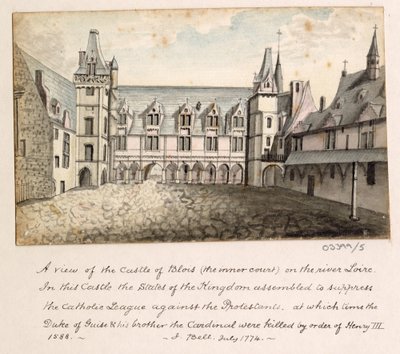 03399/5
A view of the Castle of Blois (the inner court) on the river Loire.
In this Castle the States of the Kingdom assembled to suppress
the Catholic League against the Protestants, at which time the
Duke of Guise & his brother the Cardinal were killed by order of Henry III
1588. ~ ~ J. Bell. July 1774. ~